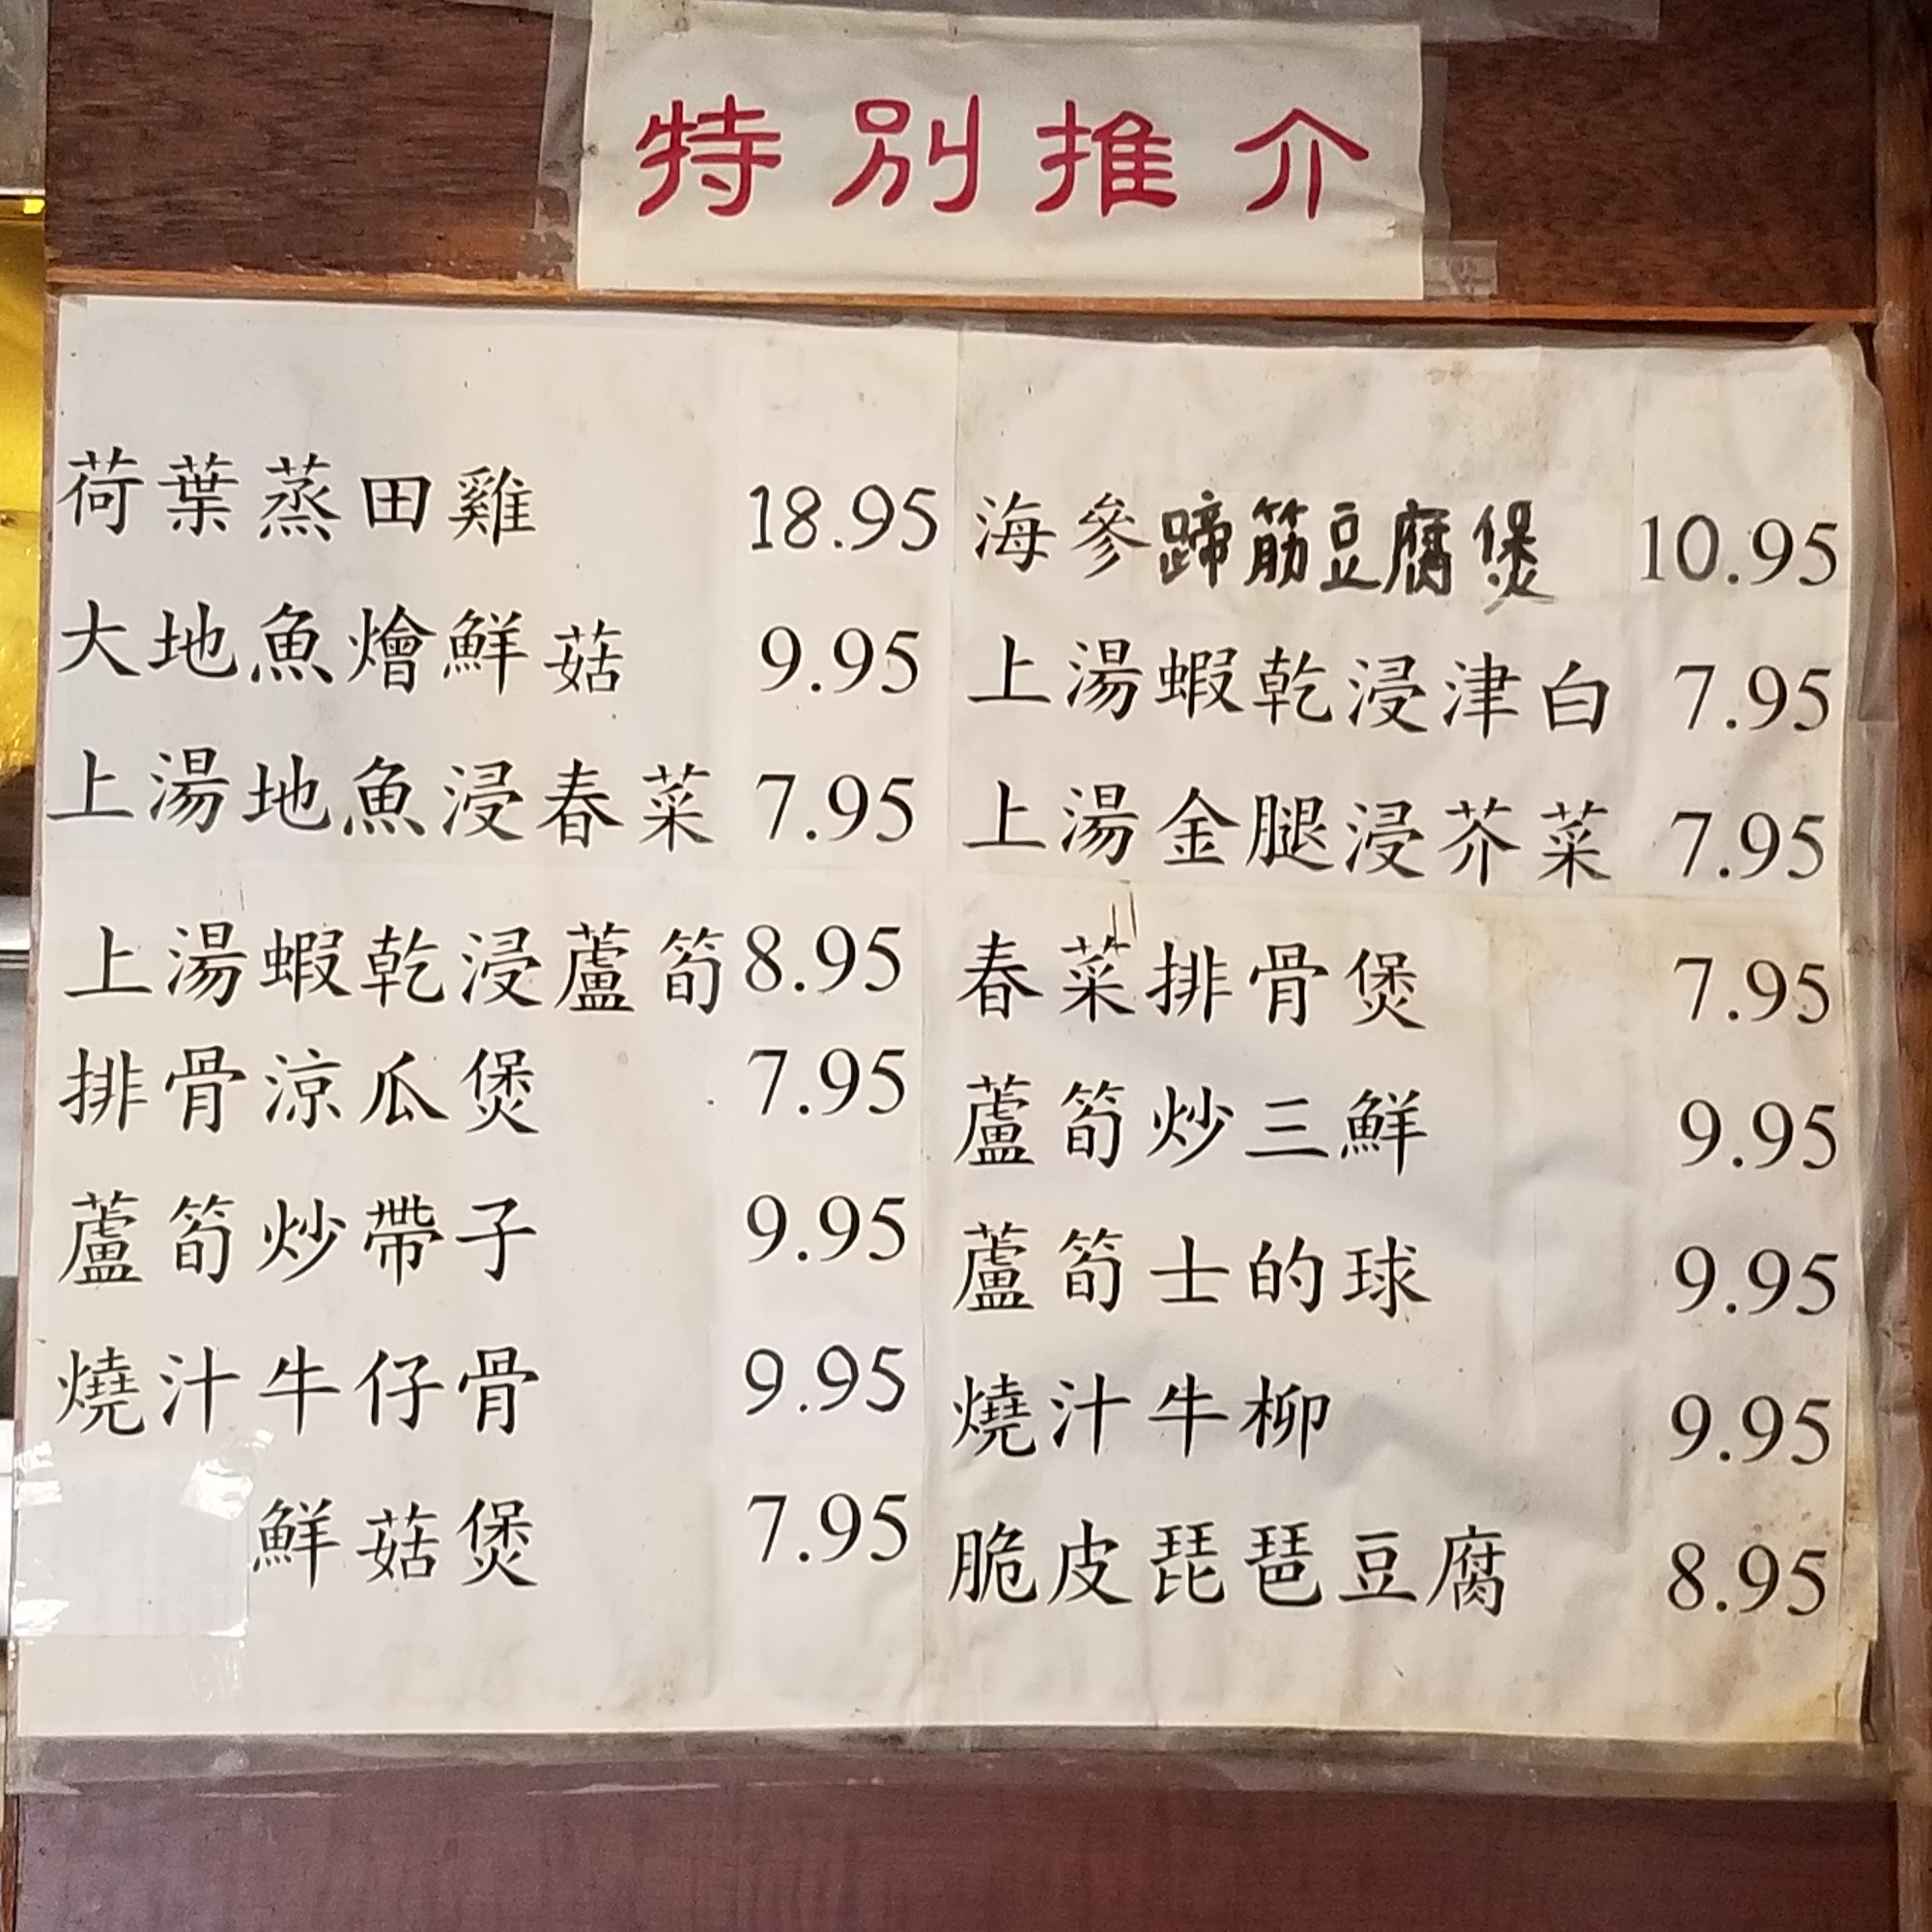 特別推介
荷葉蒸田雞 18.95
大地魚燴鮮菇 9.95
上湯地魚浸春菜 7.95
上湯蝦乾浸蘆筍 8.95
排骨涼瓜煲 7.95
蘆筍炒帶子 9.95
燒汁牛仔骨 9.95
鮮菇煲 7.95
海參蹄筋豆腐煲 10.95
上湯蝦乾浸津白 7.95
上湯金腿浸芥菜 7.95
春菜排骨煲 7.95
蘆筍炒三鮮 9.95
蘆筍士的球 9.95
燒汁牛柳 9.95
脆皮琵琶豆腐 8.95